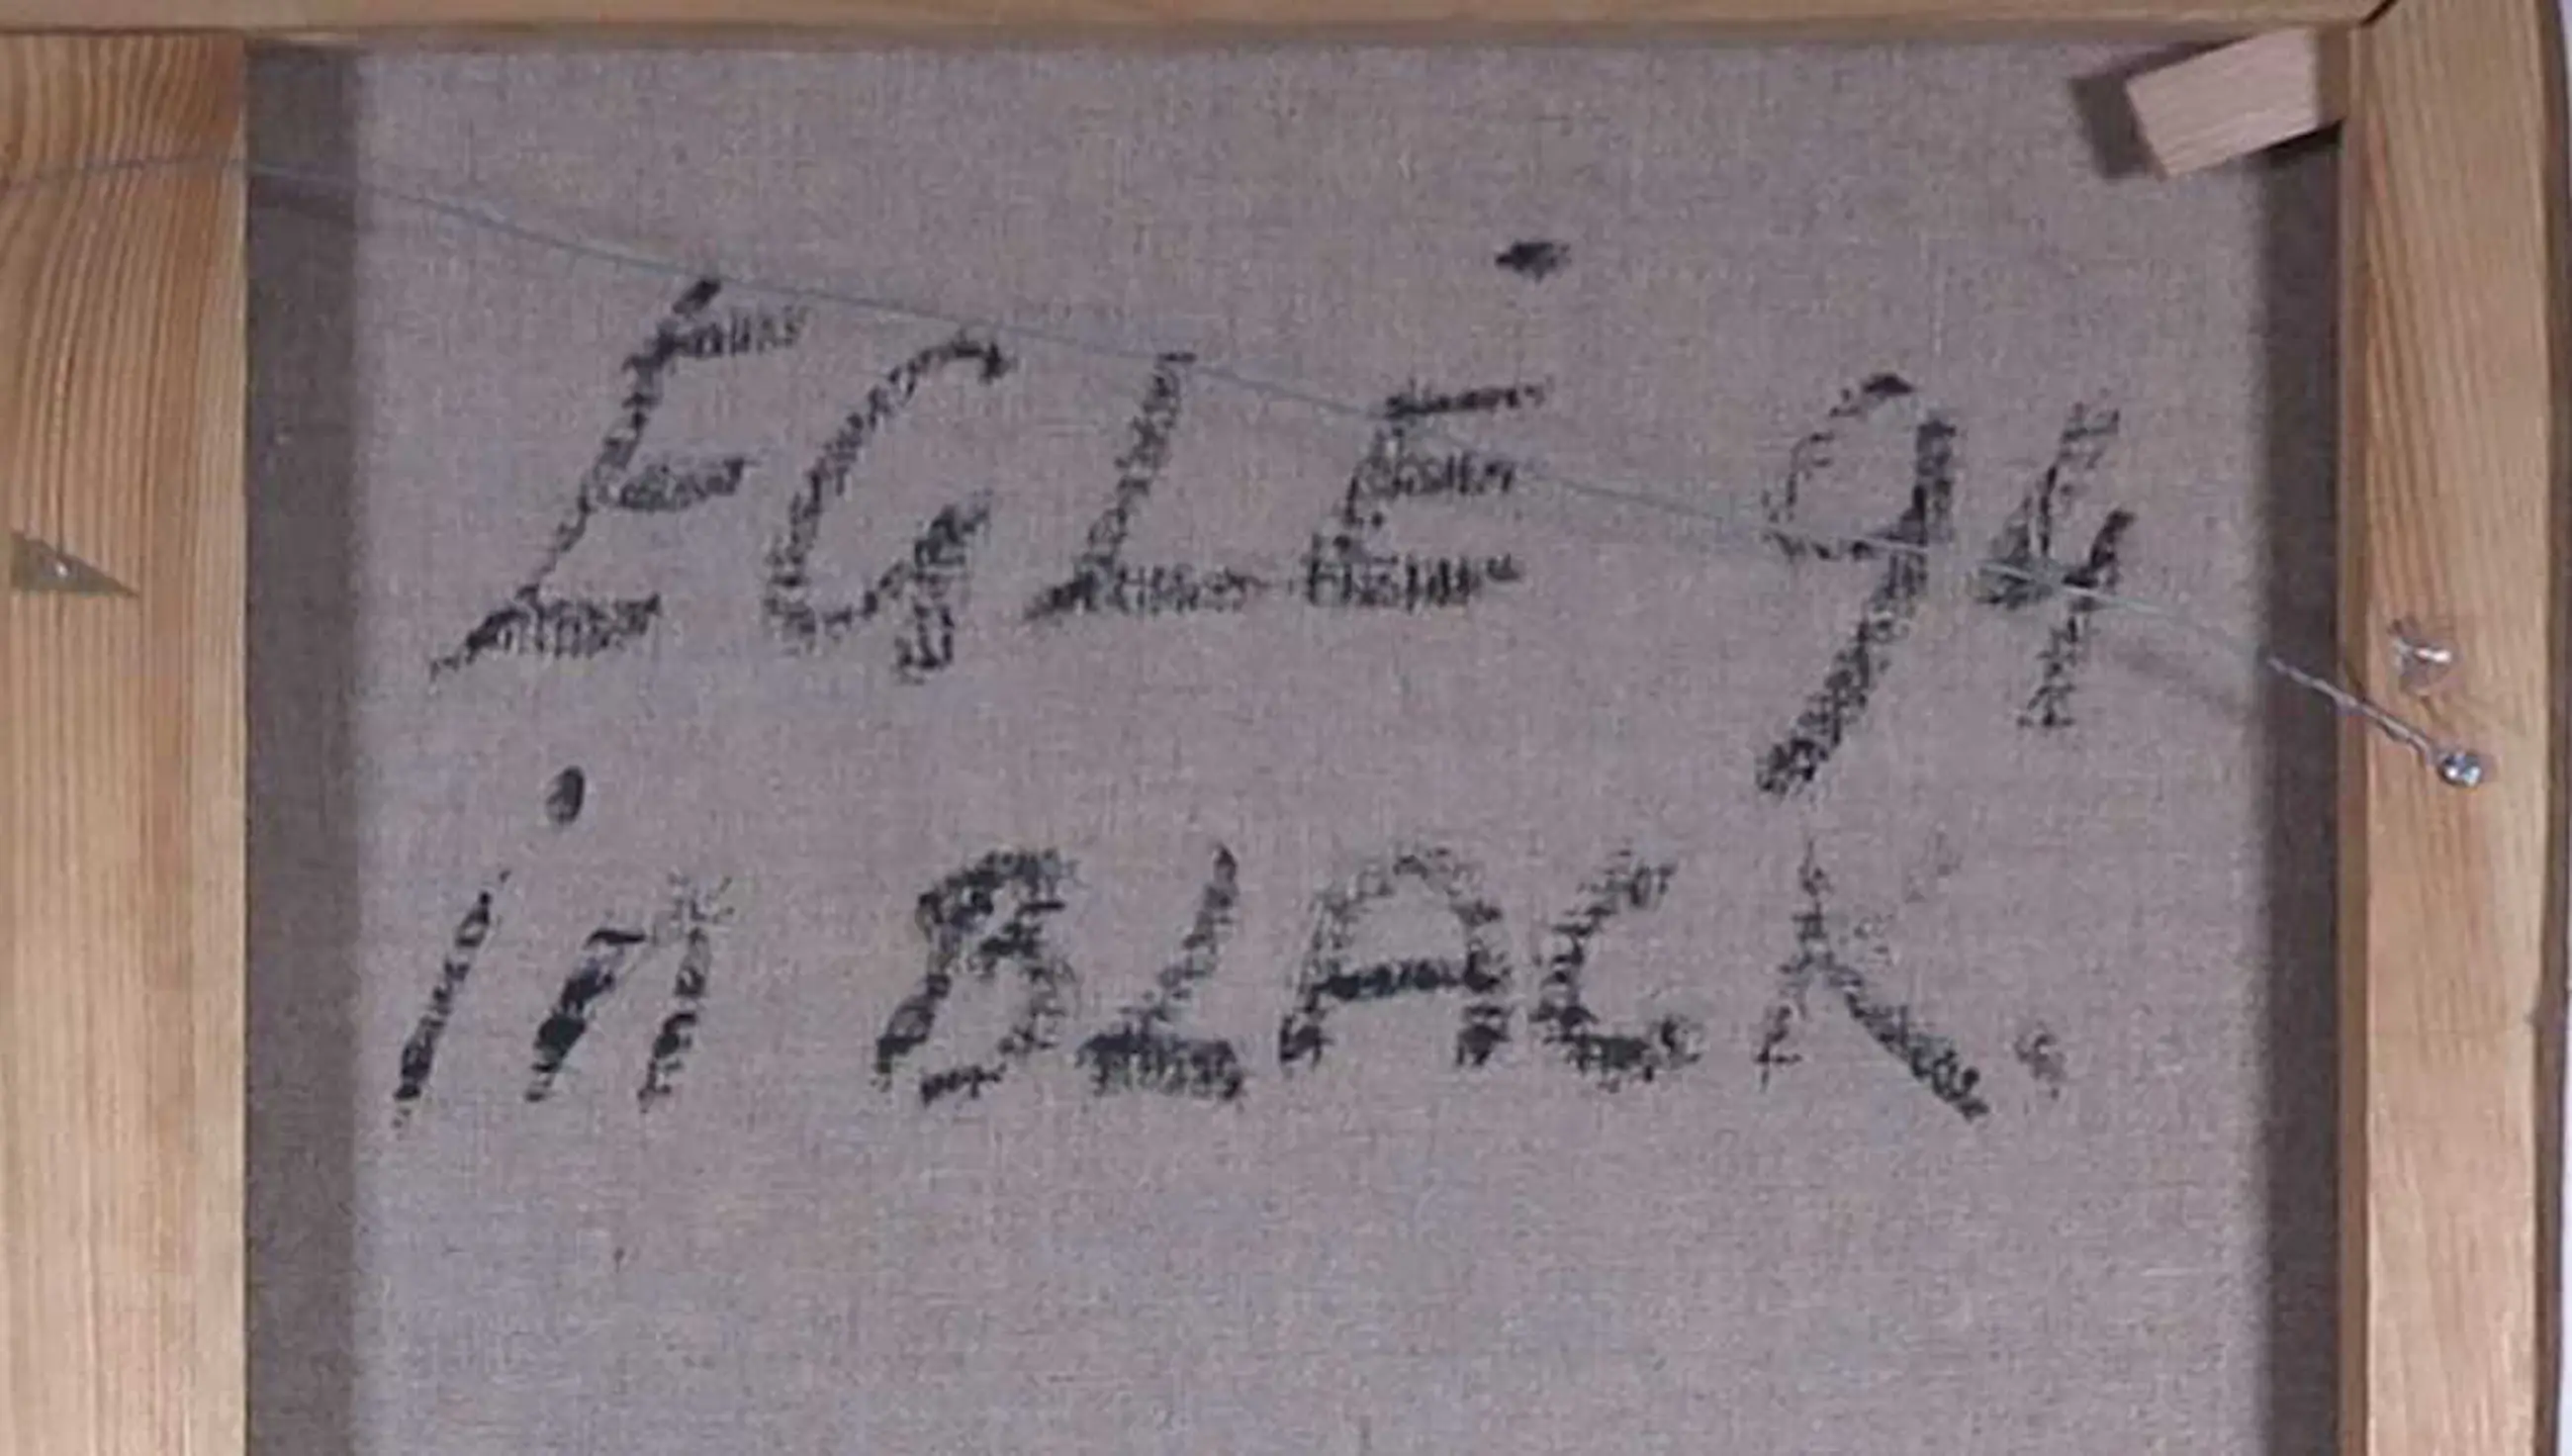 EGLĖ 94
in BLACK.